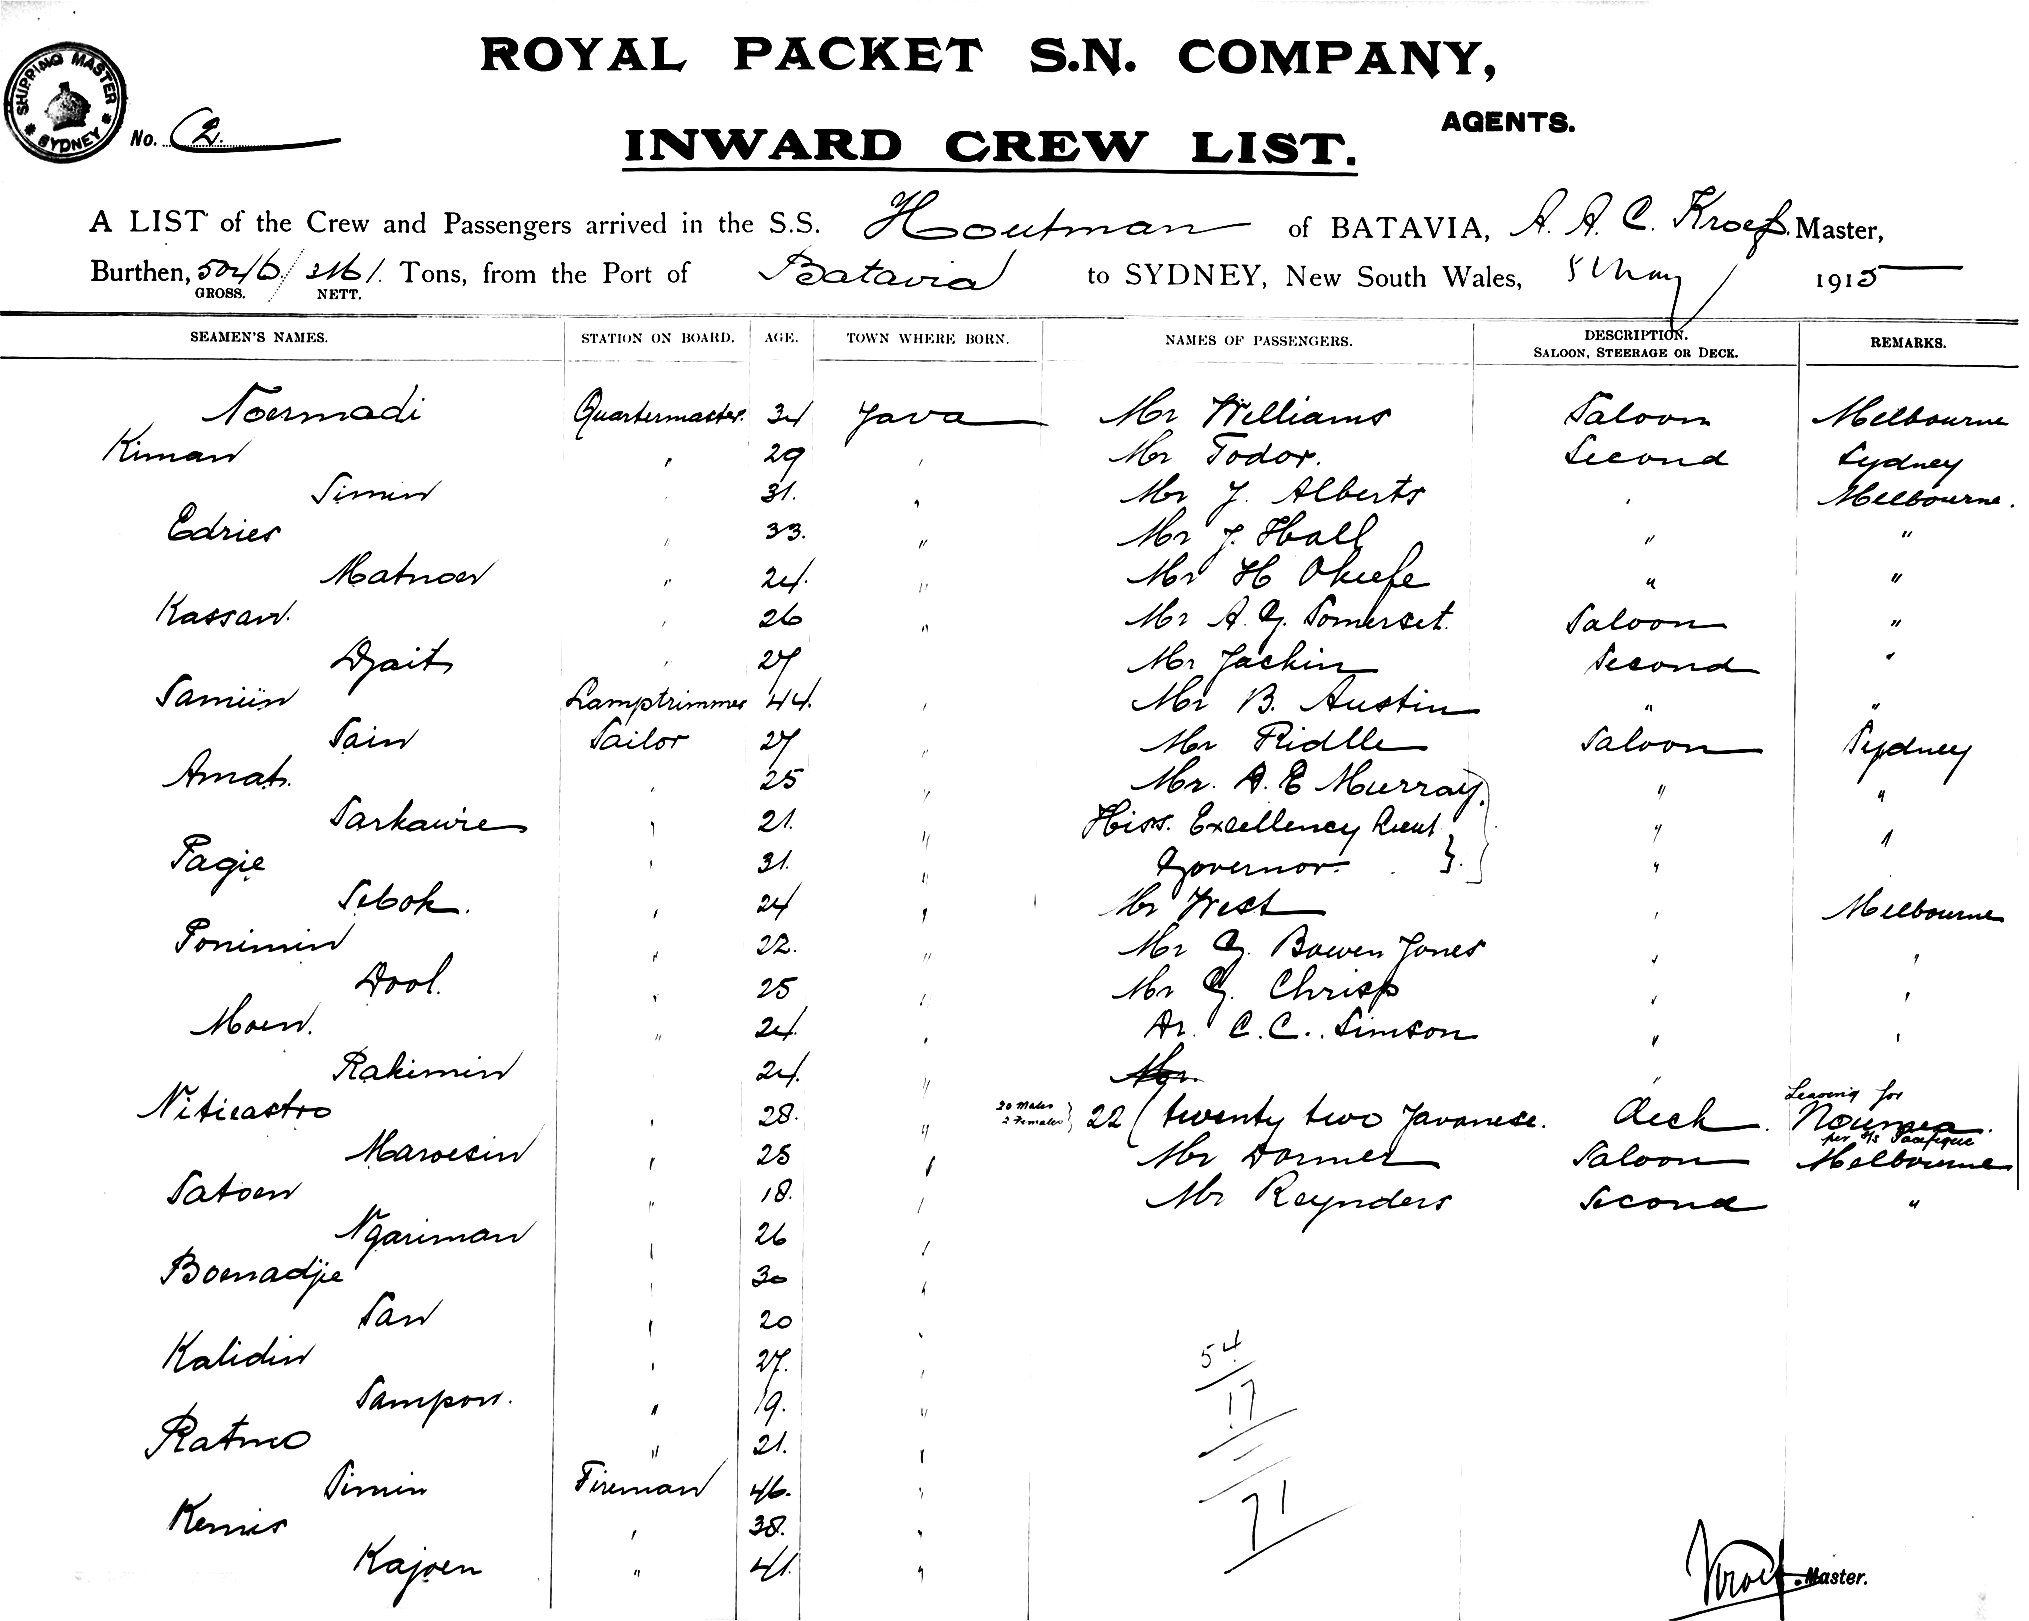 ROYAL PACKET S.N. COMPANY,
AGENTS.
SHIPPING MASTER SYDNEY
No. 2.
INWARD CREW LIST.
A LIST of the Crew and Passengers arrived in the S.S. Houtman of BATAVIA, A. A. C. Kroef. Master,
Burthen, 5046/ 3161. Tons, from the Port of Batavia to SYDNEY, New South Wales, 5 May 1915
GROSS. NETT.
SEAMEN'S NAMES. STATION ON BOARD. AGE. TOWN WHERE BORN. NAMES OF PASSENGERS. DESCRIPTION. SALOON, STEERAGE OR DECK. REMARKS.
Noermadi Quartermaster. 34 Java Mr Williams Saloon Melbourne
Kiman " 29 " Mr Todor. Second Sydney
Simin " 31. " Mr J. Alberts " Melbourne.
Edries " 33. " Mr J. Hall " "
Matnoer " 24. " Mr H Okeefe " "
Kassan. " 26 " Mr A. G. Somerset. Saloon "
Djait " 27 " Mr Jackin Second "
Samiin Lamptrimmer 44. " Mr B. Austin " "
Sain Sailor 27 " Mr Ridlle Saloon Sydney
Amat. " 25 " Mr. A. E Murray. " "
Sarkawie " 21. " Hiss. Excellency Lieut " "
Pagie " 31. " Governor. "
Sebok. " 24 " Mr West " Melbourne
Ponimin " 22. " Mr G. Bowen Jones " "
Dool. " 25 " Mr G. Chrisp " "
Moen. " 24. " Dr. C. C. Simson " "
Rakimin 24. " Mr. "
Nitieastro " 28. " 20 Males 2 Females } 22 (twenty two Javanese. deck. Leaving for Noumea. per s/s Pacifique
Maroesin " 25 " Mr Dormer Saloon Melbourne
Satoen " 18. " Mr Reynders Second "
Ngariman " 26 "
Boenadjie " 30 "
San " 20 "
Kalidin " 27. "
Sampon. " 19. "
Ratmo " 21. "
Simin Fireman 46. "
Kemis " 38. "
Kajoen " 41. "
54
17
71
Kroef. Master.